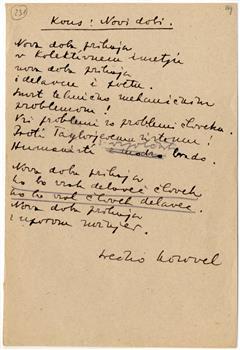 231
Kons: Novi dobi.
Nova doba prihaja
v kolektivnem imetju
nova doba prihaja
i delavcu i poetu.
Smrt tehnično mehaničnim
problemom!
Vsi problemi so problemi človeka.
Proti Taylorjevemu zistemu!
Humanisti bodo.
Nova doba prihaja
ko bo vsak delavec človek
ko bo vsak človek delavec.
Nova doba prihaja
Srečko Kosovel